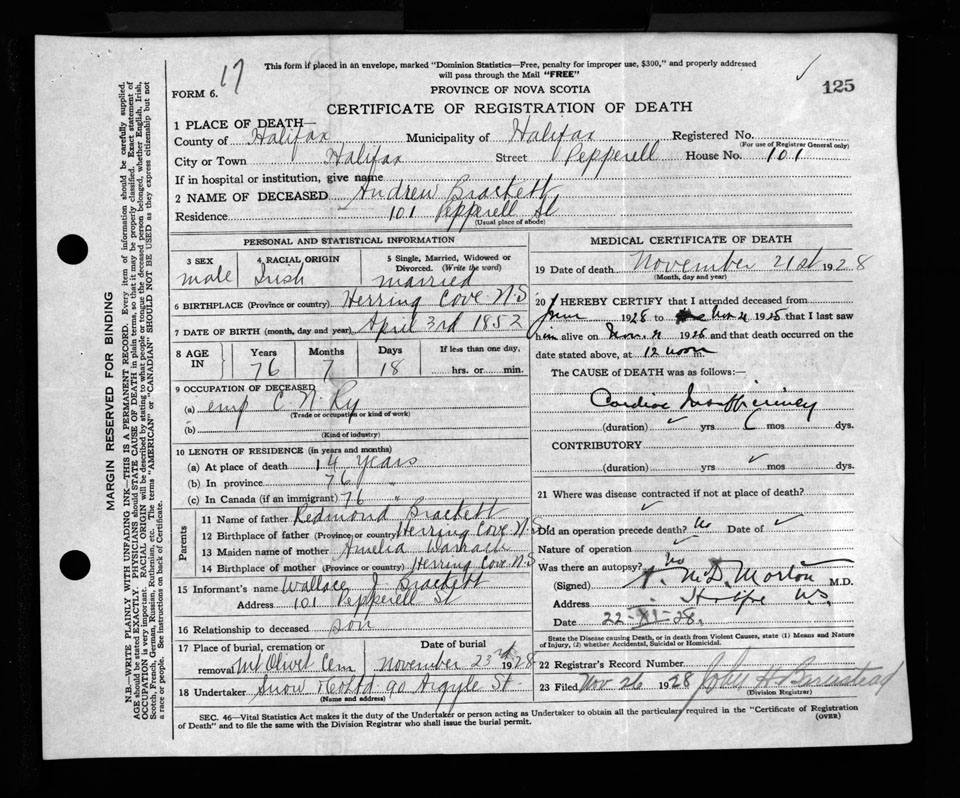 17
This form if placed in an envelope, marked "Dominion Statistics—Free, penalty for improper use, $300," and properly addressed
will pass through the Mail "FREE"
125
PROVINCE OF NOVA SCOTIA
FORM 6.
CERTIFICATE OF REGISTRATION OF DEATH
1 PLACE OF DEATH—
County of Halifax Municipality of Halifax Registered No.
(For use of Registrar General only)
City or Town Halifax Street Pepperell House No. 101
If in hospital or institution, give name
2 NAME OF DECEASED Andrew Brackett
Residence 101 Pepperell St
(Usual place of abode)
PERSONAL AND STATISTICAL INFORMATION
3 SEX 4 RACIAL ORIGIN 5 Single, Married, Widowed or
Divorced. (Write the word)
male Irish married
6 BIRTHPLACE (Province or country) Herring Cove N.S
7 DATE OF BIRTH (month, day and year) April 3rd 1852
8 AGE IN Years Months Days If less than one day,
76 7 18 hrs. or min.
9 OCCUPATION OF DECEASED
(a) emp C. N. Ry
(Trade or occupation or kind of work)
(b)
(Kind of industry)
10 LENGTH OF RESIDENCE (in years and months)
(a) At place of death 14 years
(b) In province 76 "
(c) In Canada (if an immigrant) 76 "
Parents
11 Name of father Redmond Brackett
12 Birthplace of father (Province or country) Herring Cove N.S
13 Maiden name of mother Amelia
14 Birthplace of mother (Province or country) Herring Cove N.S
15 Informant's name Wallace J Brackett
Address 101 Pepperell St
16 Relationship to deceased son
17 Place of burial, cremation or Date of burial
removal Mt Olivet Cem November 23rd 1928
18 Undertaker Snow & Co Ltd 90 Argyle St.
(Name and address)
MEDICAL CERTIFICATE OF DEATH
19 Date of death November 21st 1928
(Month, day and year)
20 I HEREBY CERTIFY that I attended deceased from
June 1928 to Nov 21 1928 that I last saw
him alive on Nov. 21 1928 and that death occurred on the
date stated above, at 12 noon
The CAUSE OF DEATH was as follows:—
Cardiac Insufficiency
(duration) yrs 6 mos dys.
CONTRIBUTORY
(duration) yrs mos dys.
21 Where was disease contracted if not at place of death?
Did an operation precede death? No Date of
Nature of operation
Was there an autopsy? No
(Signed) McD. Morton M.D.
Address Halifax N.S.
Date 22-XI-28.
State the Disease causing Death, or in death from Violent Causes, state (1) Means and Nature
of Injury, (2) whether Accidental, Suicidal or Homicidal.
22 Registrar's Record Number
23 Filed Nov 26 1928 John H Barnstead
(Division Registrar)
SEC. 46—Vital Statistics Act makes it the duty of the Undertaker or person acting as Undertaker to obtain all the particulars required in the "Certificate of Registration
of Death" and to file the same with the Division Registrar who shall issue the burial permit.
(OVER)
MARGIN RESERVED FOR BINDING
N.B.—WRITE PLAINLY WITH UNFADING INK—THIS IS A PERMANENT RECORD. Every item of information should be carefully supplied.
AGE should be stated EXACTLY. PHYSICIANS should STATE CAUSE OF DEATH in plain terms, so that it may be properly classified. Exact statement of
OCCUPATION is very important. RACIAL ORIGIN will be described by stating to what people or tongue the deceased person belonged, whether English, Irish,
Scotch, French, German, Russian, Ruthenian, etc. The terms "AMERICAN" or "CANADIAN" SHOULD NOT BE USED as they express citizenship but not
a race or people. See instructions on back of Certificate.